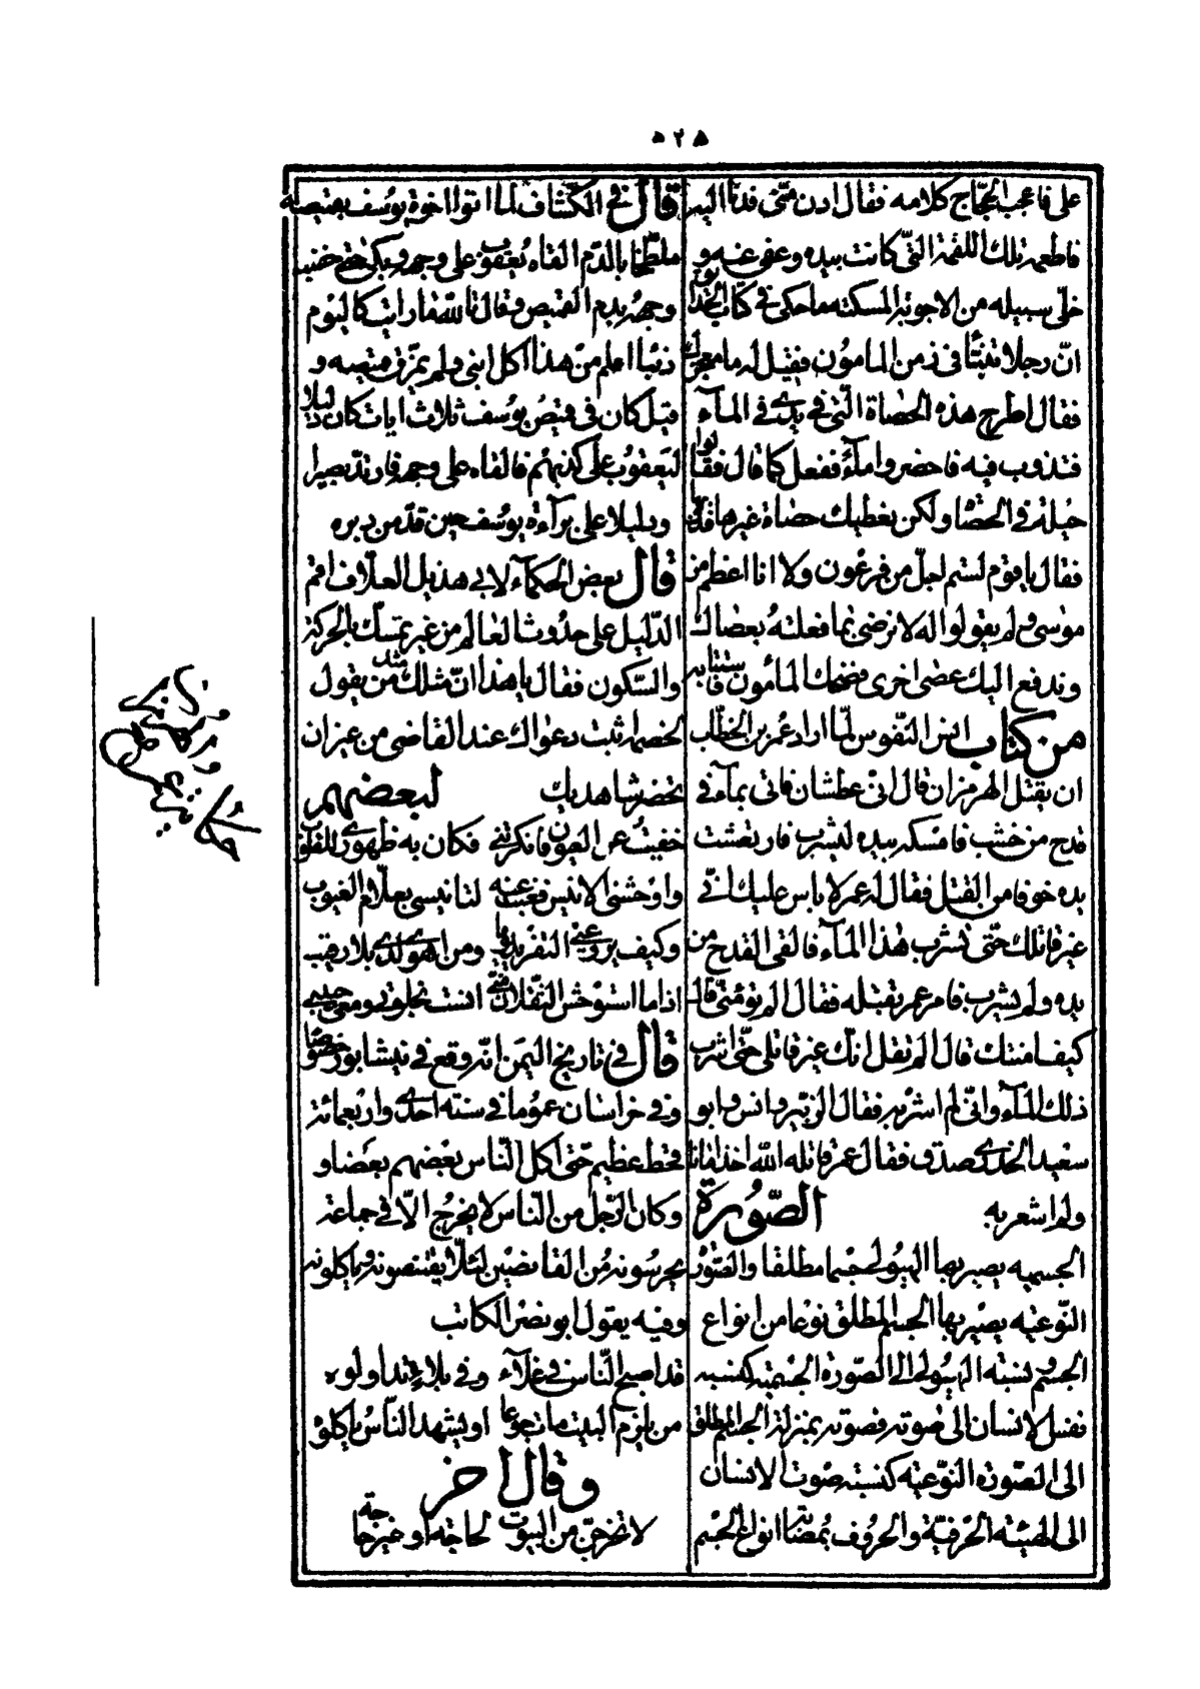 ٥٢٥
علی فاعجب الحجّاج کلامه فقال ادن منّی فدنا الیه
فاطعمه تلك اللقمة التّی کانت بیده وعفی عنه و
خلّی سبیله من الاجوبة المسکته ماحکی فی کتاب
انّ رجلا تنبّأ فی زمن المامون فقیل له ما معجزتك
فقال اطرح هذه الحصاة الّتی فی یدی فی المآء
فتذوب فیه فاحضروا مآءً ففعل کما قال فقالوا
حیلة فی الحصا ولکن نعطیك حصاة غیرها
فقال یا قوم لستم اجلّ من فرعون ولا انا اعظم من
موسی ولم یقولوا له لا نرضی بما فعلته بعصاك
وندفع الیك عصی اخری فضحك المامون
من کتاب انیس النّفوس لمّا اراد عمر بن الخطّاب
ان یقتل الهرمزان قال انّی عطشان فاتی بمآء فی
قدح من خشب فامسکه بیده لیشرب فارتعشت
یده خوفا من القتل فقال له عمر لا باس علیك انّی
غیر قاتلك حتّی تشرب هذا المآء فالقی القدح من
یده ولم یشرب فامر عمر بقتله فقال الم تؤمنّی قال
کیف امنتك قال الم تقل انّك غیر قاتلی حتّی اشرب
ذلك المآء وانّی لم اشربه فقال الزّبیر وانس وابو
سعید الخدری صدق فقال عمر قاتله الله اخذ امانا
ولم اشعر به الصّورة
الجسمیه یصیر بها الهیولی جسما مطلقا والصّور
النّوعیّه یصیر بها الجسم المطلق نوعا من انواع
الجسم ونسبته الهیولی الی الصّورة الجسمیّه کنسبه
نفس الانسان الی صوته فصوته بمنزلة الجسم المطلق
الی الصّورة النّوعیّه کنسبته صوت الانسان
الی الهیئته الحرفیّة والحروف انواع الجسم
قال فی الکشّاف لما اتوا اخوة یوسف بقمیصه
ملطّخا بالدّم القاه یعقوب علی وجهه وبکی حتّی خضب
وجهه بدم القمیص وقال تالله مارایت کالیوم
ذئبا احلم من هذا اکل ابنی ولم یمزّق قمیصه و
قیل کان فی قمیص یوسف ثلاث ایات کان دلیلا
لیعقوب علی کذبهم فالقاه علی وجهه فارتدّ بصیرا
ودلیلا علی برآءة یوسف حین قدّ من دبره
قال بعض الحکمآء لابی هذیل العلّاف اقم
الدّلیل علی حدوث العالم من غیر تمسّك بالحرکة
والسّکون فقال یا هذا انّ مثلك مثل من یقول
لخصم اثبت دعواك عند القاضی من غیر ان
تحضر شاهدیك لبعضهم
خفیت عن العیون فانکرتنی فکان به ظهوری للقلوب
واوحشنی الانیس فغبت عنه لتانیسی بعلّام الغیوب
وکیف یروعنی التفرید یوما ومن اهوی لدیّ بلا رقیب
اذا ما استوحش الثّقلان منّی انست بخلوتی ومعی حبیبی
قال فی تاریخ الیمن انّه وقع فی نیشابور خصوصا
وفی خراسان عموما فی سنته احدی واربعمائة
قحط عظیم حتّی اکل النّاس بعضهم بعضا و
وکان الرّجل من النّاس لا یخرج الّا فی جماعة
یحرسونه من القانصین لئلّا یقتنصونه ویاکلونه
وفیه یقول ابو نصر الکاتب
قد اصبح النّاس فی غلآء وفی بلاء تداولوه
من یلزم البیت مات جوعا او یشهد النّاس یاکلوه
وقال اخر
لا تخرجنّ من البیوت لحاجة او غیر حاجة